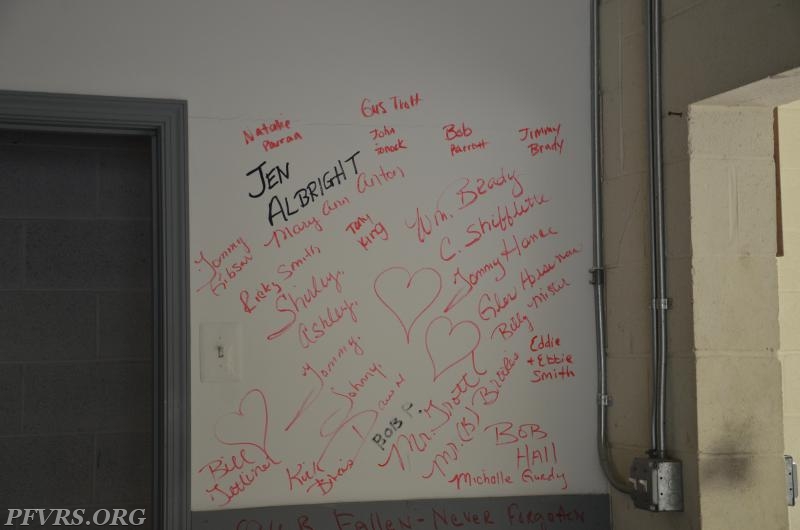 Gus Trott
Natalie
Parran
John
Bob
Parrott
Jimmy
Brady
JEN
ALBRIGHT
Mary Ann Anton
Tony
King
Wm. Brady
C. Shifflette
Tommy
Gibson
Ricky Smith
Shirley.
Ashley.
Tommy.
Johnny
Dawn
Tommy Hance
Glen
Billy Mister
Eddie
+ Ebbie
Smith
BOB F.
Mr. Trott
Mr. (B)
BOB
HALL
Micholle
Bill
Kick
Fallen - Never Forgotten
PFVRS.ORG